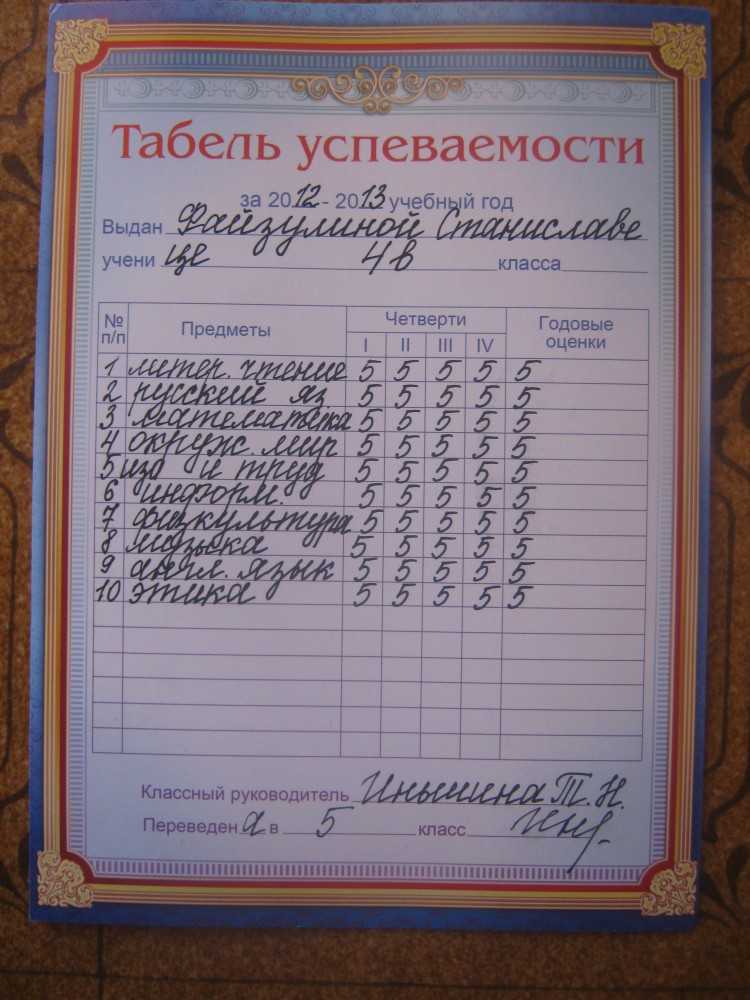 Табель успеваемости
за 2012 - 2013 учебный год
Выдан Файзулиной Станиславе
учени це 4в класса
№ п/п Предметы Четверти Годовые оценки
I II III IV
1 литер. чтение 5 5 5 5 5
2 русский яз 5 5 5 5 5
3 математика 5 5 5 5 5
4 окруж. мир 5 5 5 5 5
5 изо и труд 5 5 5 5 5
6 информ. 5 5 5 5 5
7 физкультура 5 5 5 5 5
8 музыка 5 5 5 5 5
9 англ. язык 5 5 5 5 5
10 этика 5 5 5 5 5
Классный руководитель Иньшина Т. Н.
Переведен а в 5 класс